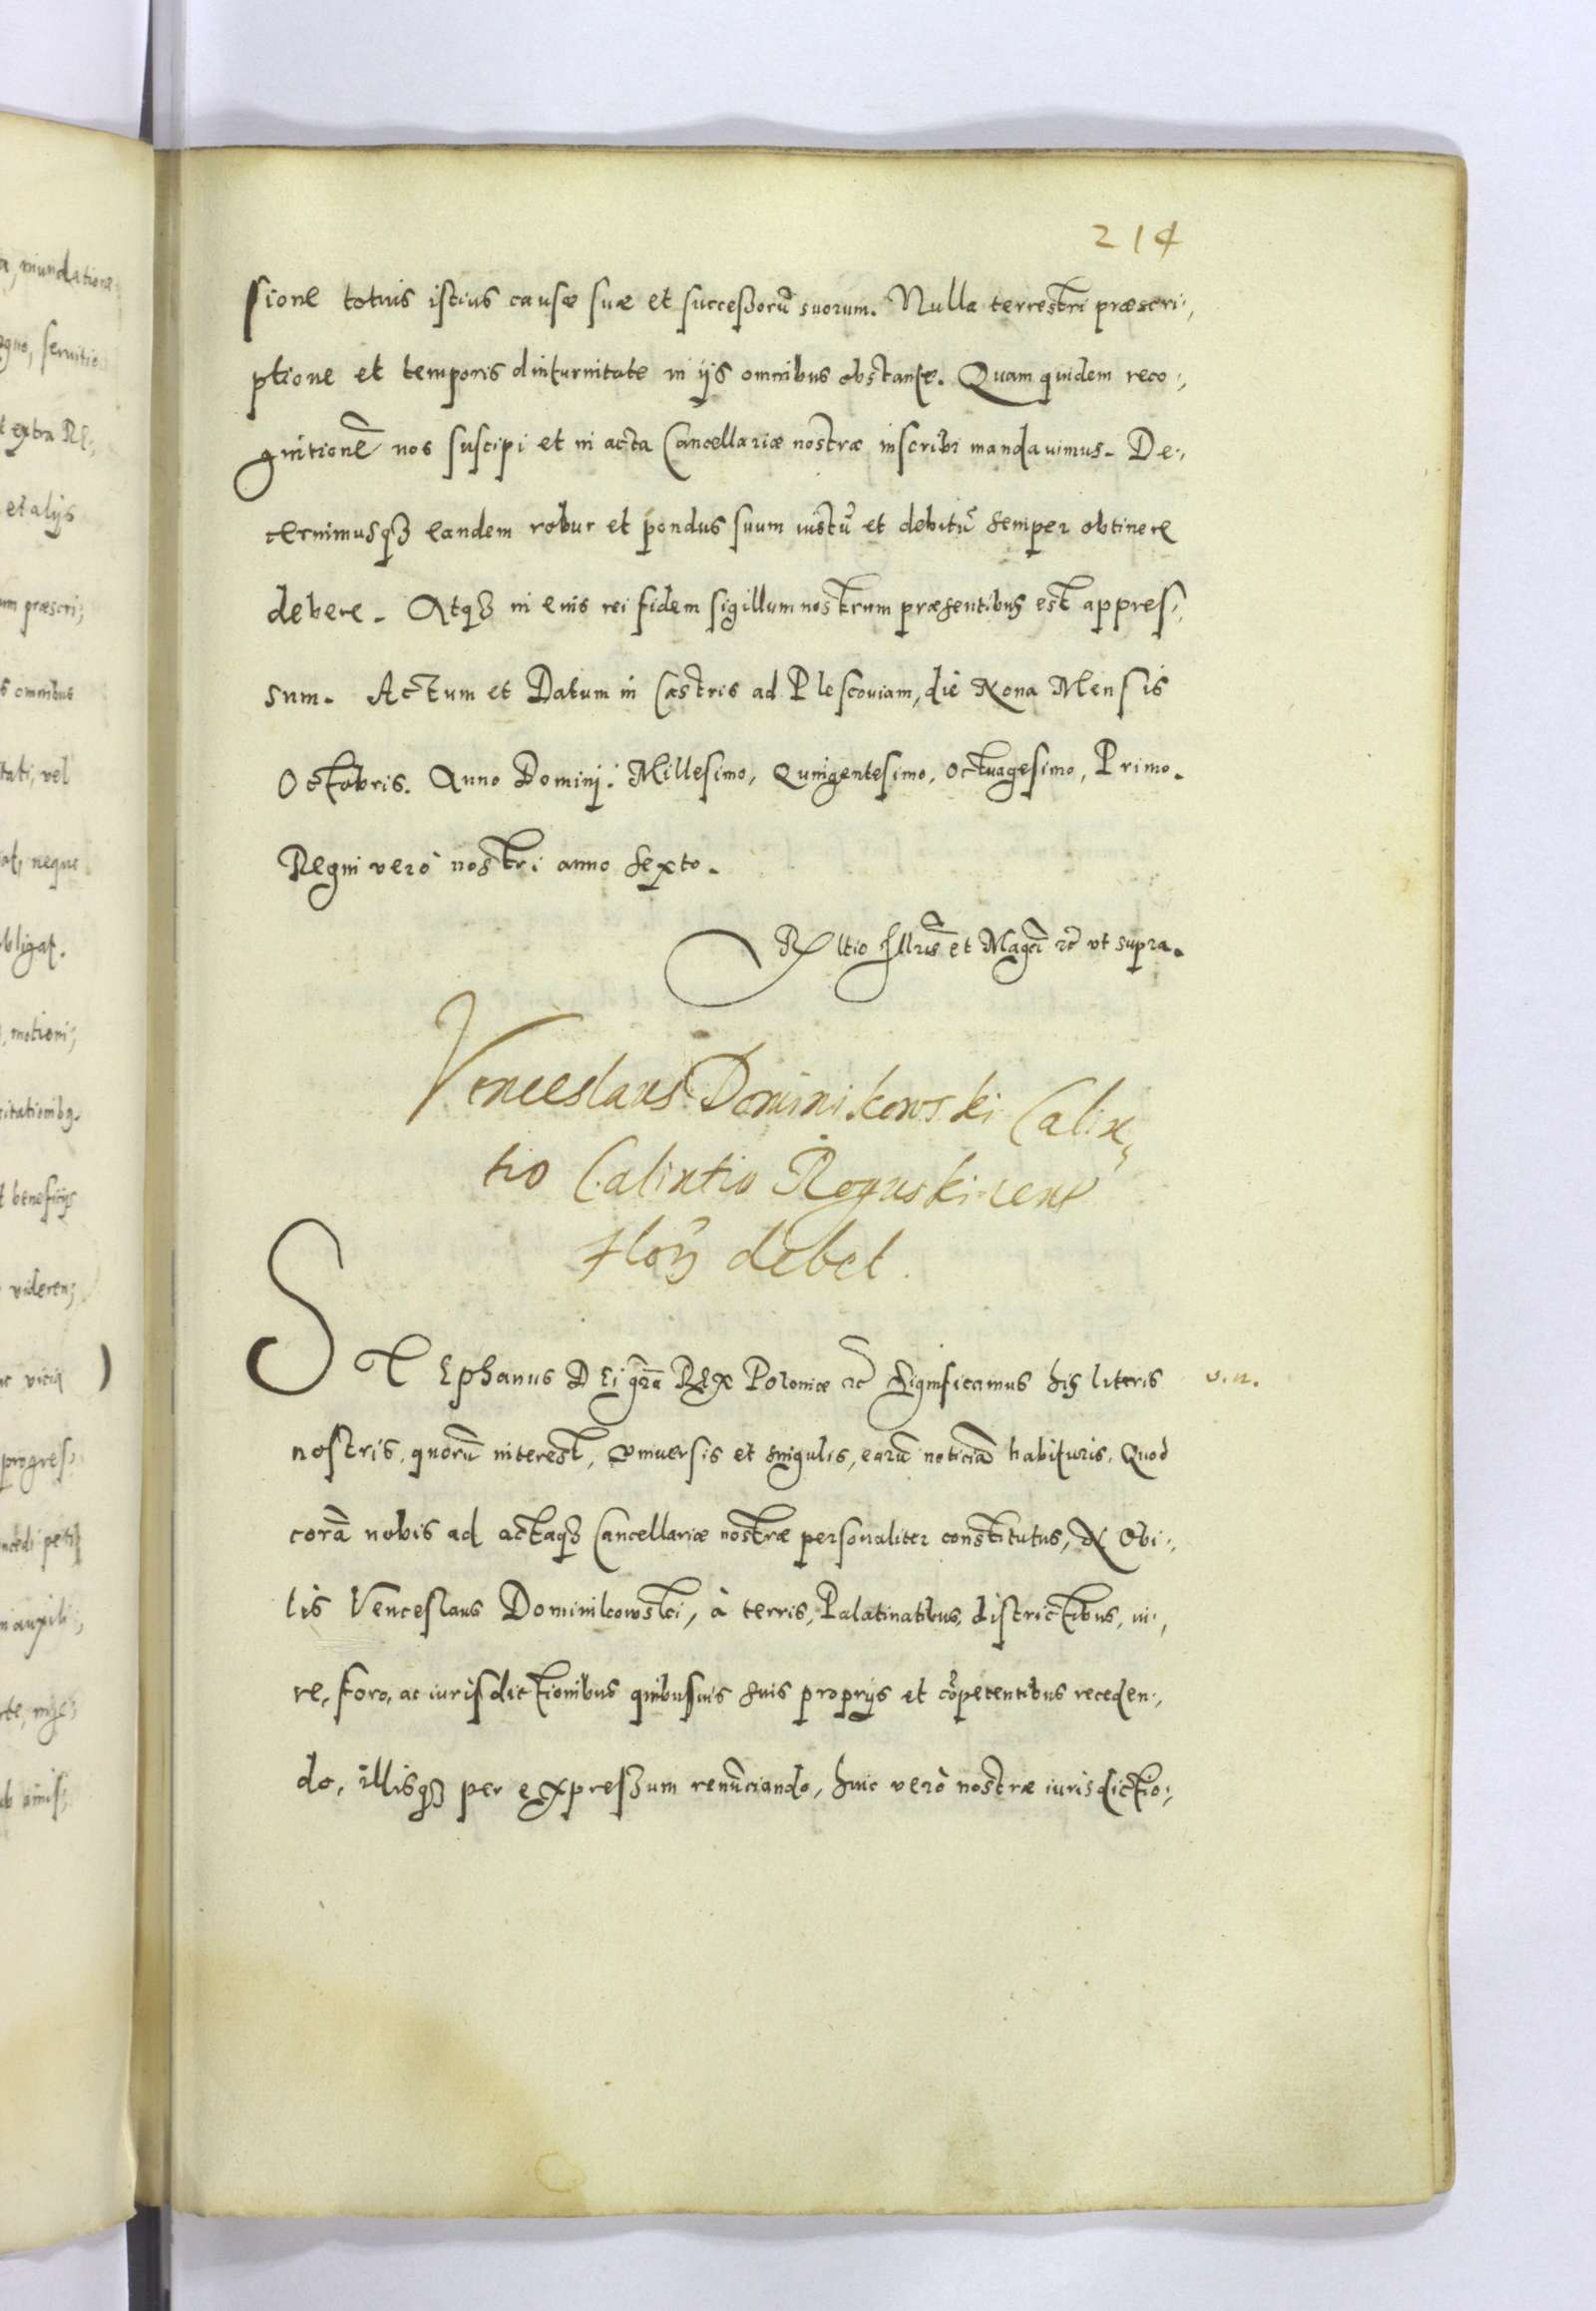 214
sione totius istius causæ suæ et successorũ suorum. Nulla terrestri præscri,
ptione et temporis diuturnitate in ijs omnibus obstante. Quam quidem reco,
gnitionẽ nos suscipi et in acta Cancellariæ nostræ inscribi mandauimus. De,
cernimusqꝫ eandem robur et pondus suum iustũ et debitũ semper obtinere
debere. Atqꝫ in eius rei fidem sigillum nostrum præsentibus est appres,
sum. Actum et Datum in Castris ad Plescouiam, die Nona Mensis
Octobris. Anno Dominj. Millesimo, Quingentesimo, Octuagesimo, Primo.
Regni verò nostri anno sexto.
Rltio Illris et Magci ꝛc̃ vt supra.
Venceslaus Dominikowski Calix,
tio Calixtio Roguski cent
floꝫ debet.
STEphanus DEi gr̃a REX Poloniæ ꝛc̃ Significamus his literis
v. n.
nostris, quorũ interest, vniuersis et singulis, earũ noticiã habituris. Quod
corã nobis ad actaqꝫ Cancellariæ nostræ personaliter constitutus, NObi,
lis Venceslaus Dominikowski, à terris, Palatinatibus, districtibus, iu,
re, foro, ac iurisdictionibus quibusuis suis proprijs et cõpetentibus receden,
do, illisqꝫ per expressum renũciando, huic verò nostræ iurisdictio,